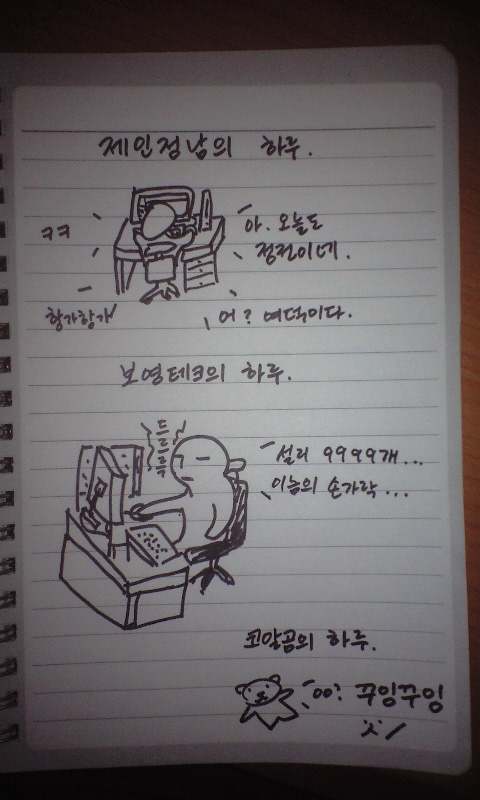 제인정남의 하루.
ㅋㅋ
아. 오늘도
정전이네.
항가항가
어? 여덕이다.
보영테크의 하루.
드르륵
설리 9999개...
이놈의 손가락...
코알곰의 하루.
응? 뿌잉뿌잉